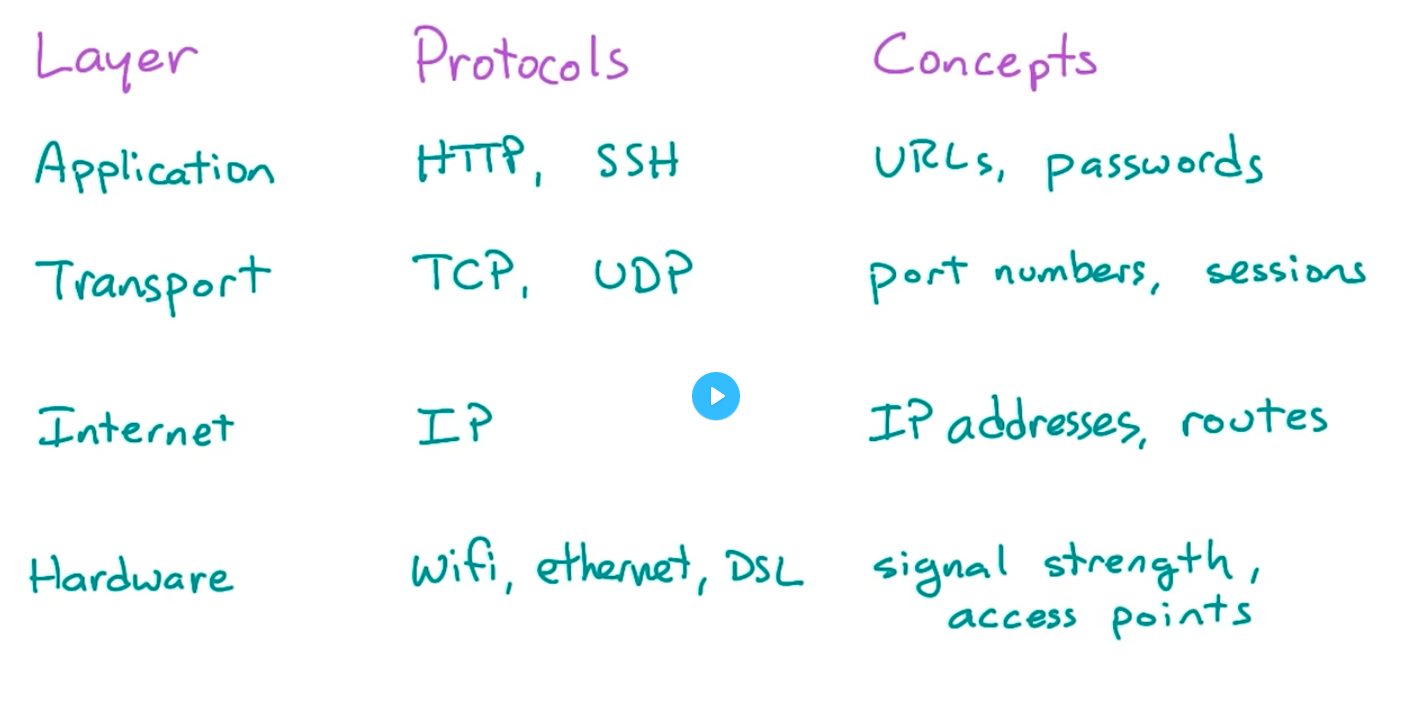 Layer Protocols Concepts
Application HTTP, SSH URLs, passwords
Transport TCP, UDP port numbers, sessions
Internet IP IP addresses, routes
Hardware Wifi, ethernet, DSL signal strength,
access points